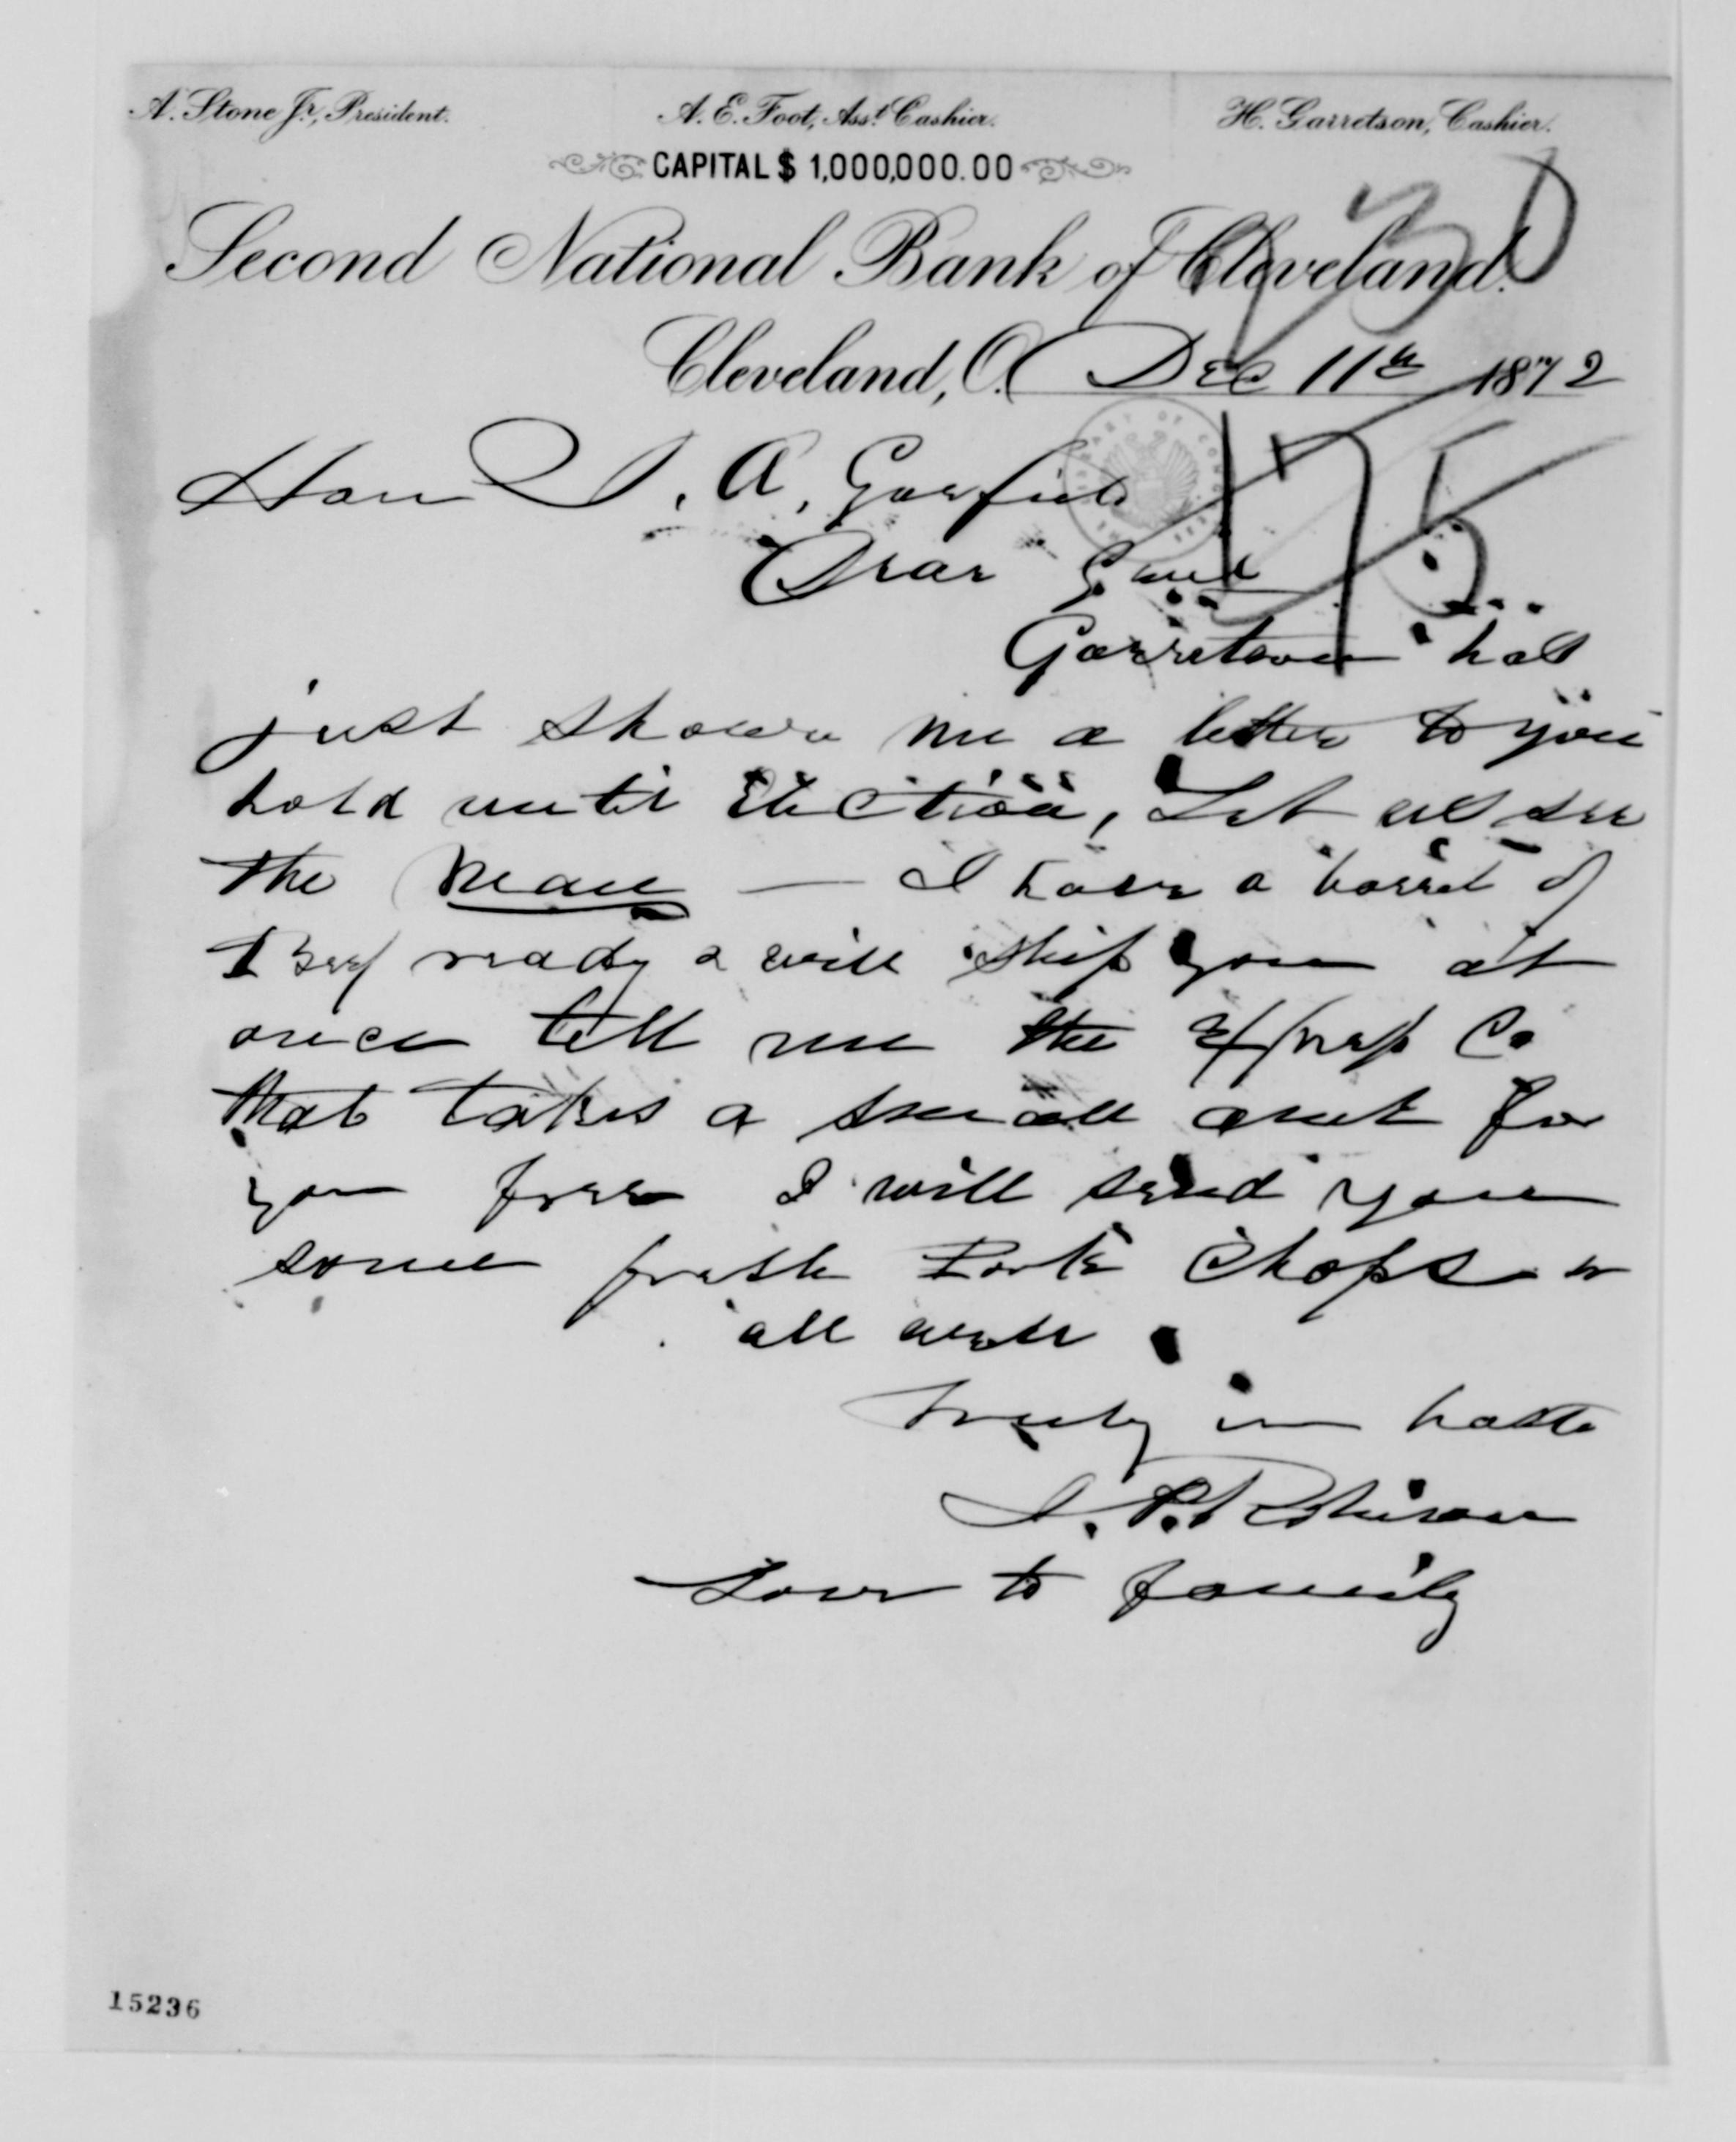 A. Stone Jr., President.
A. E. Foot, Asst. Cashier.
H. Garretson, Cashier.
CAPITAL $ 1,000,000.00
Second National Bank of Cleveland.
Cleveland, O. Dec 11th 1872
Hon J. A. Garfield
Dear
Garretson has
just shown me a letter to you
hold until Election, Let us see
the man — I have a barrel of
Beef ready & will ship you at
once tell me the Express Co
that takes a small amt for
you free I will send you
some fresh Pork Chops
all well
Truly in haste
J. P. Robison
Love to family
15236